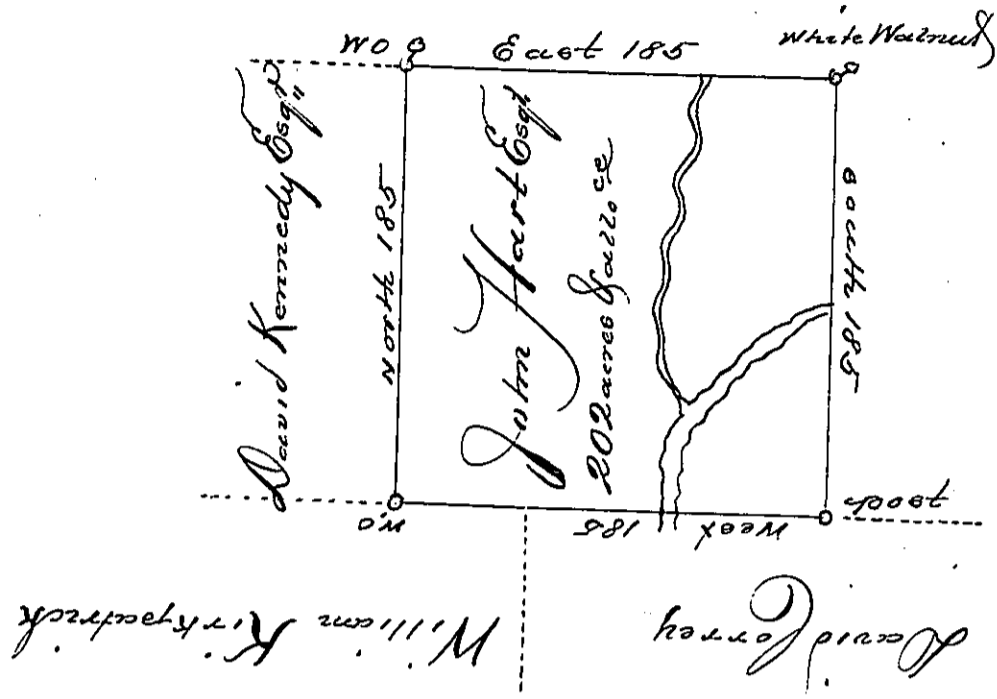 WO
East 185
White Walnut
David Kennedy Esqr
North 185
John Hart Esqr
202 acres & allo.ce
South 185
Wo
West 185
David Correy
William Kirkpatrick